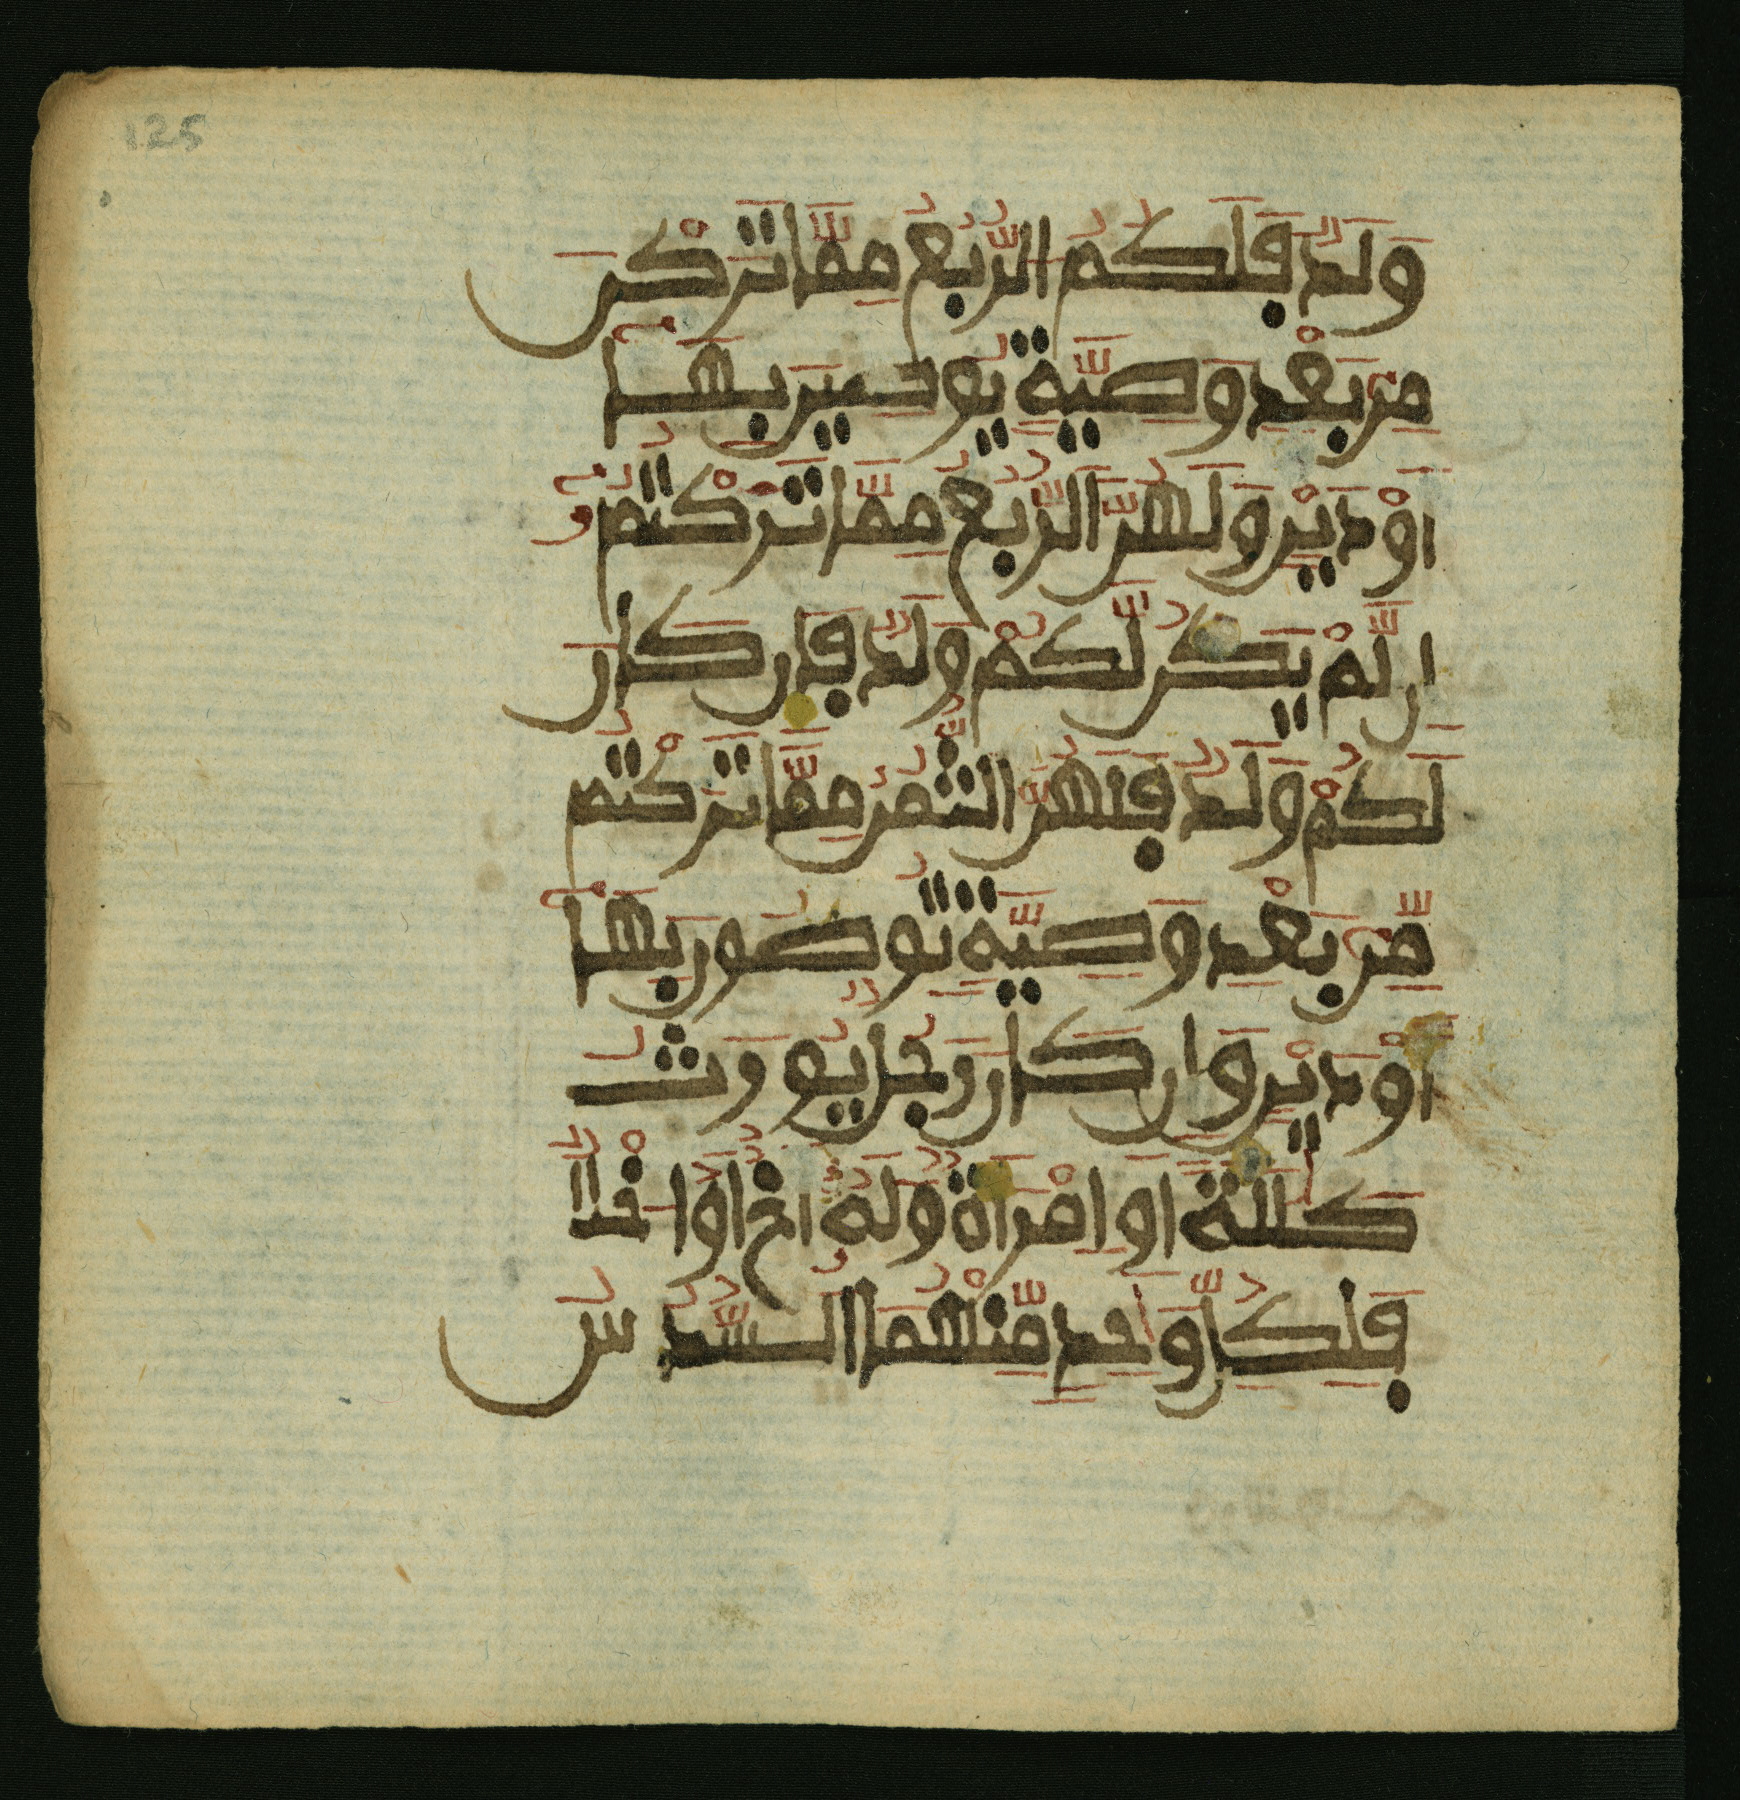 125
وَلَدٌ فَلَكُمُ الرُّبُعُ مِمَّا تَرَكْنَ
مِنۢ بَعْدِ وَصِيَّةٍ يُوصِينَ بِهَا
أَوْ دَيْنٍ وَلَهُنَّ الرُّبُعُ مِمَّا تَرَكْتُمُ
إِن لَّمْ يَكُن لَّكُمْ وَلَدٌ فَإِن كَانَ
لَكُمْ وَلَدٌ فَلَهُنَّ الثُّمُنُ مِمَّا تَرَكْتُم
مِّنۢ بَعْدِ وَصِيَّةٍ تُوصُونَ بِهَا
أَوْ دَيْنٍ وَإِن كَانَ رَجُلٌ يُورَثُ
كَلَٰلَةً أَوِ امْرَأَةٌ وَلَهُۥٓ أَخٌ أَوُ اخْتٌ
فَلِكُلِّ وَٰحِدٍ مِّنْهُمَا السُّدُسُ